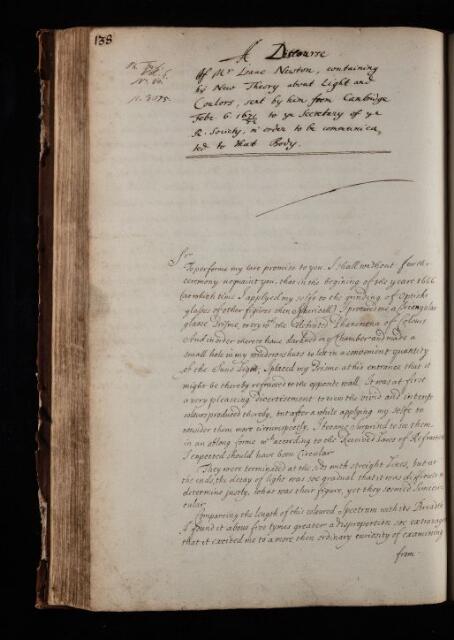 138
A Discourse
Of Mr Isaac Newton, containing
his New Theory about Light and
Coulors, sent by him from Cambridge
Febr 6 167½ to ye Secretary of ye
R. Society, in order to be communica
ted to that Body.
Sr
To performe my late promise to you, I shall without further
ceremony acquaint you, that in the begining of the yeare 1666
(at which time I applyed my selfe to the grinding of Optick
glasses of other figures then Sphericall) I procured me a Triangular
glasse Prisme, to try wth the Celebrated Phænomena of Colours
And in order thereto have darkned my Chamber and made a
small hole in my window shuts to let in a convenient quantity
of the Suns Light, I placed my Prisme at his entrance that it
might be thereby refracted to the opposite wall. It was at first
a very pleasing divertisement to view the vivid and intense
colours produced thereby, but after a while applying my selfe to
consider them more circumspectly, I became surprised to see them
in an oblong forme wch according to the Received Laws of Refraction
I expected should have been Circular
They were terminated at the sides with streight Lines, but at
the ends, the decay of light was soe gradual that it was difficult to
determine justly, what was their figure, yet they seemed Semicir
cular
Compareing the length of this coloured Spectrum with its Breadth
I found it about five tymes greater a disproportion soe extravagant
that it excited me to a more then ordinary curiosity of examining
from